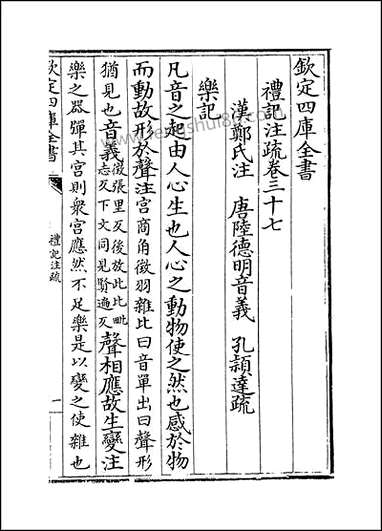 欽定四庫全書
禮記注疏卷三十七
漢鄭氏注 唐陸德明音義 孔穎達疏
樂記
凡音之起由人心生也人心之動物使之然也感於物
而動故形於聲注宮商角徵羽雜比曰音單出曰聲形
猶見也音義徵張里反後放此比毗志反下文同見賢遍反聲相應故生變注
樂之器彈其宮則衆宮應然不足樂是以變之使雜也
欽定四庫全書
禮記注疏
一